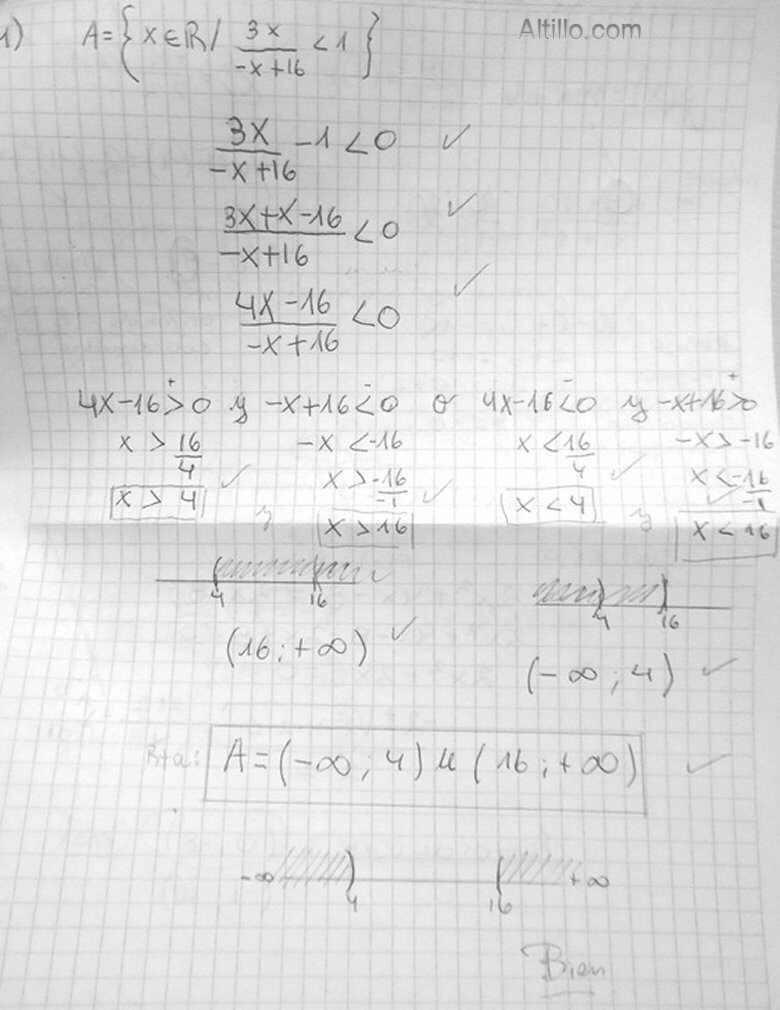 Altillo.com
1) A = { x ∈ ℝ / 3x/(-x+16) < 1 }
3x/(-x+16) - 1 < 0 ✓
(3x+x-16)/(-x+16) < 0 ✓
(4x-16)/(-x+16) < 0 ✓
+ - - +
4x-16 > 0 y -x+16 < 0 o 4x-16 < 0 y -x+16 > 0
x > 16/4 -x < -16 x < 16/4 -x > -16
x > 4 ✓ y x > -16/-1 ✓ x < 4 ✓ y x < -16/-1 ✓
x > 16 x < 16
4 16 4 16
(16 ; +∞) ✓ (-∞ ; 4) ✓
Rta: A = (-∞ ; 4) u (16 ; +∞) ✓
-∞ ) ( +∞
4 16
Bien